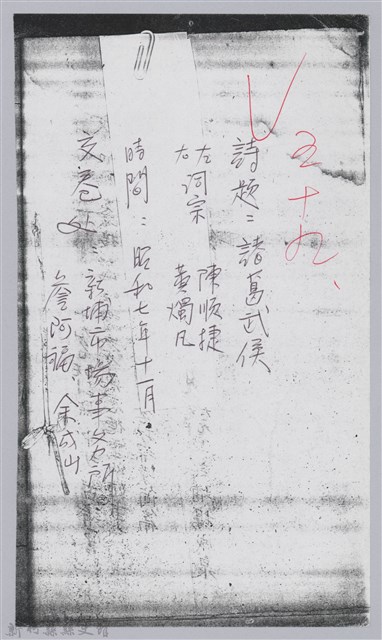 五十九、
詩題：諸葛武侯
左詞宗 陳順捷
右詞宗 黃燭凡
時間：昭和七年十一月
交卷处：新埔市場事务所
詹阿 余成山